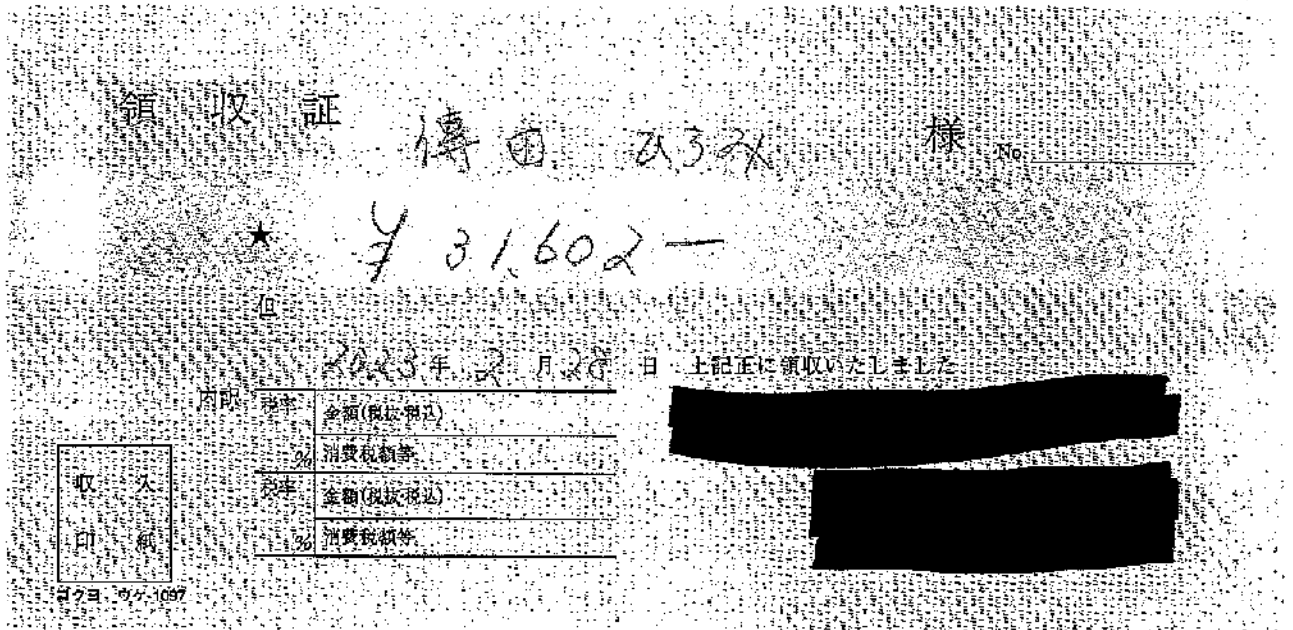 領収証
傳田 ひろみ 様 No.
★ ¥31,602―
但
2023年 2月28日 上記正に領収いたしました
内訳 税率 金額(税抜・税込)
% 消費税額等
税率 金額(税抜・税込)
% 消費税額等
収入
印紙
コクヨ ウケ-1097